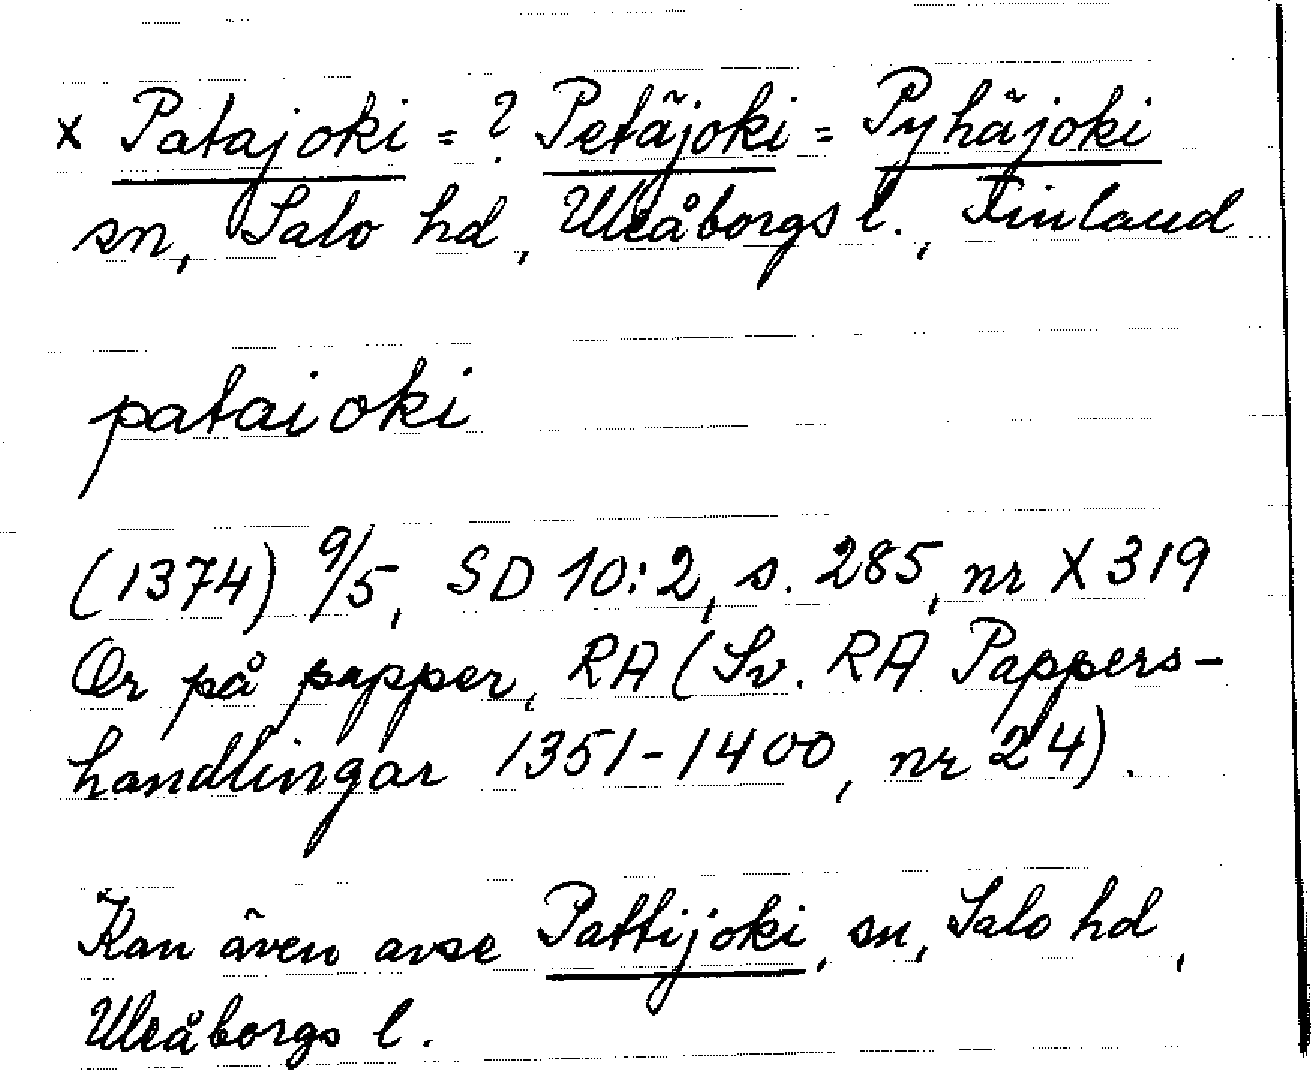 x Patajoki = ? Petäjoki = Pyhäjoki
sn, Salo hd, Uleåborgs l., Finland
pataioki
(1374) 9/5, SD 10:2, s. 285, nr X 319
Or på papper, RA (Sv. RA Pappers-
handlingar 1351-1400, nr 24).
Kan även avse Pattijoki, sn, Salo hd,
Uleåborgs l.